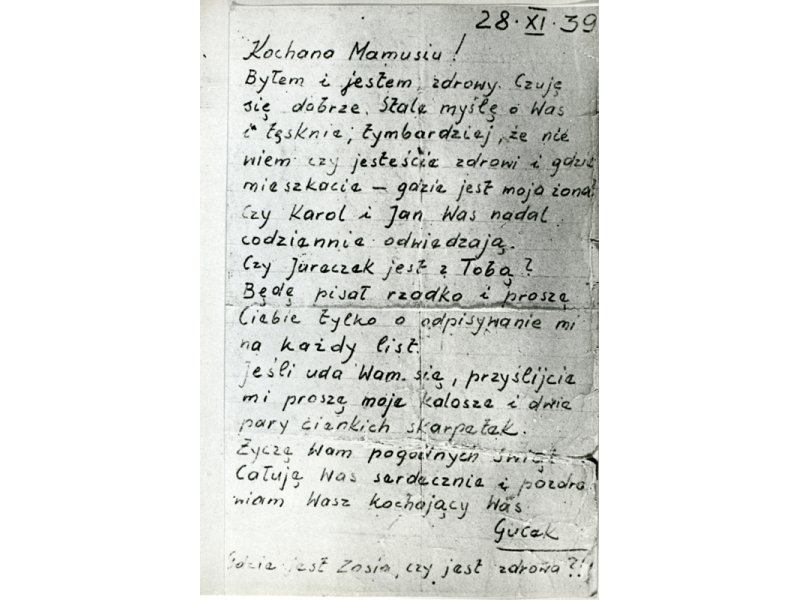 28·XI·39
Kochana Mamusiu!
Byłem i jestem zdrowy. Czuję
się dobrze. Stale myślę o Was
i tęsknię, tymbardziej, że nie
wiem czy jesteście zdrowi i gdzie
mieszkacie – gdzie jest moja żona?
Czy Karol i Jan Was nadal
codziennie odwiedzają.
Czy Jureczek jest z Tobą?
Będę pisał rzadko i proszę
Ciebie tylko o odpisywanie mi
na każdy list.
Jeśli uda Wam się, przyślijcie
mi proszę moje kalosze i dwie
pary cienkich skarpetek.
Życzę Wam pogodnych świąt
Całuję Was serdecznie i pozdra
wiam Wasz kochający Was
Gucek
Gdzie jest Zosia, czy jest zdrowa?!!